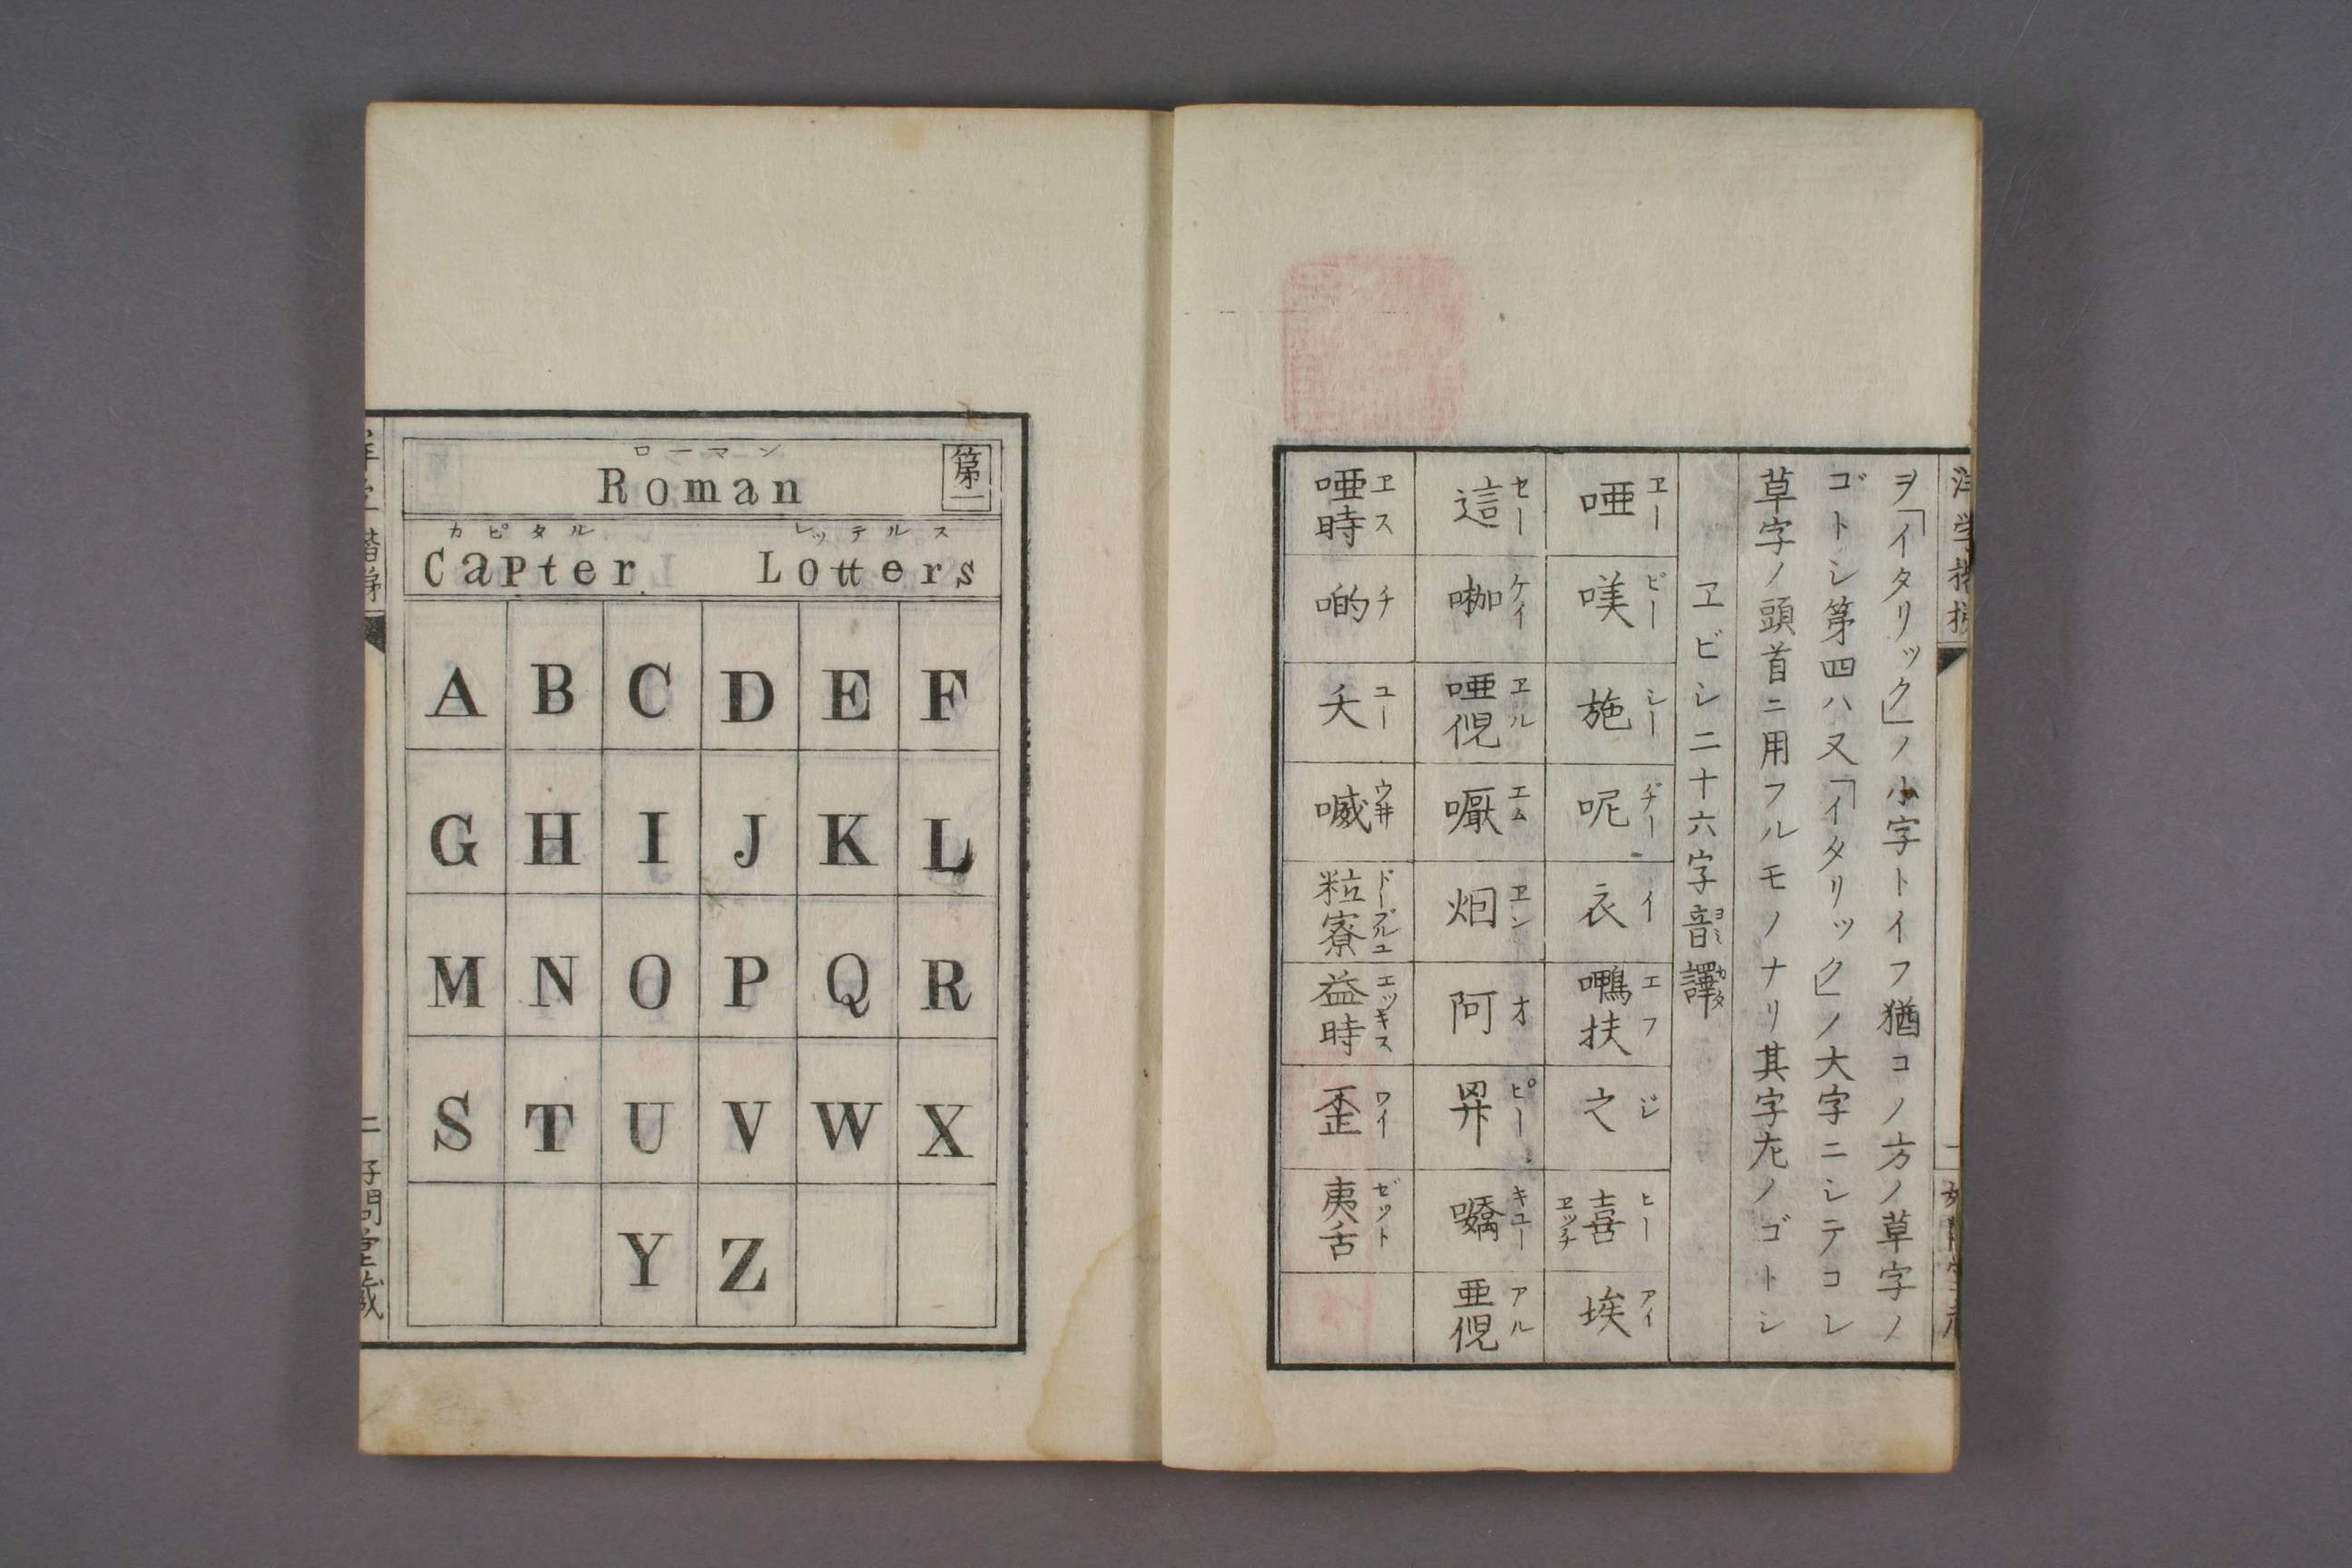 ヲ「イタリック」ノ小字トイフ猶コノ方ノ草字ノ
ゴトシ第四ハ又「イタリック」ノ大字ニシテコレ
草字ノ頭首ニ用フルモノナリ其字左ノゴトシ
ヱビシ二十六字音譯
ヱー 唖
ビー 𠸍
シー 施
ヂー 呢
イ 衣
エフ 鴨扶
ジ 之
ヒー 喜 ヱッチ
アイ 埃
セー 這
ケイ
ヱル 唖倪
エム 嚈
ヱン 烟
オ 阿
ピー
キユー
アル 亜倪
ヱス 唖時
チ 啲
ユー 夭
ウ井 嘁
ドーブルユ 粒寮
エッキス 益時
ワイ 歪
ゼット 夷舌
第一
ローマン
Roman
カピタル レッテルス
Capter Lotters
A B C D E F
G H I J K L
M N O P Q R
S T U V W X
Y Z
二 好問堂蔵